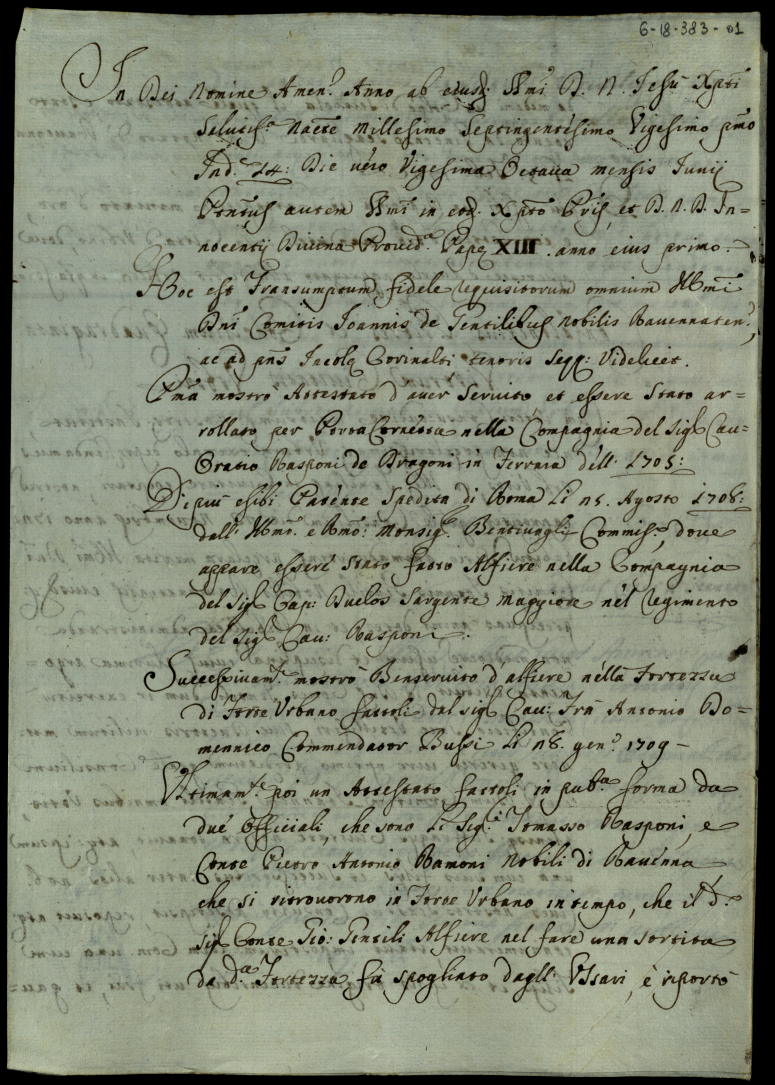 6-18-383-01
In Dei Nomine Amen. Anno ab eiusd. D. N. Jesu Xpti
Salutif.ª Nat.e Millesimo Septingentesimo Vigesimo pmo
Ind.e 14: Die vero Vigesima Octava mensis Junij
Pontus autem in Xpto Pris, et D. N. D. In=
nocentij Divina Provid.ª Pape XIII. anno eius primo.
Hoc est Transumptum fidele requisitorum omnium Illmi
Dni Comitis Joannis de Gentilibus nobilis Ravennaten.
ac ad pns Covinalti tenoris seqq: Videlicet.
Pma mostrò Attestato d'aver Servito, et essere Stato ar=
rollato per Porta Cornetta nella Compagnia del Sig.r Cav=
Oratio Rasponi de Dragoni in Ferrara dell' 1705:
Di più esibì Patente Spedita di Roma Li 15. Agosto 1708:
dall' Illmo. e Rmo: Monsig.r Bentivogli Commiss.º, dove
appare essere Stato fatto Alfiere nella Compagnia
del Sig.r Cap: Buelos Sargente Maggiore nel Regimento
del Sig.r Cav: Rasponi.
Successivam.te mostrò Benservito d'alfiere nella Fortezza
di Forte Urbano fattoli dal Sig.r Cav: Frà Antonio Do=
mennico Commendator Bussi Li 18. gen.º 1709-
Ultimam.te poi un Attestato fattoli in pub.ª forma da
due Officiali, che sono Li Sig.ri Tomasso Rasponi, e
Conte Pietro Antonio Bamoni Nobili di Ravenna
che si ritrovorono in Forte Urbano in tempo, che il d.º
Sig.r Conte Gio: Gentili Alfiere nel fare una sortita
da d.ª Fortezza fù spogliato dagll' Ussari, è riportò